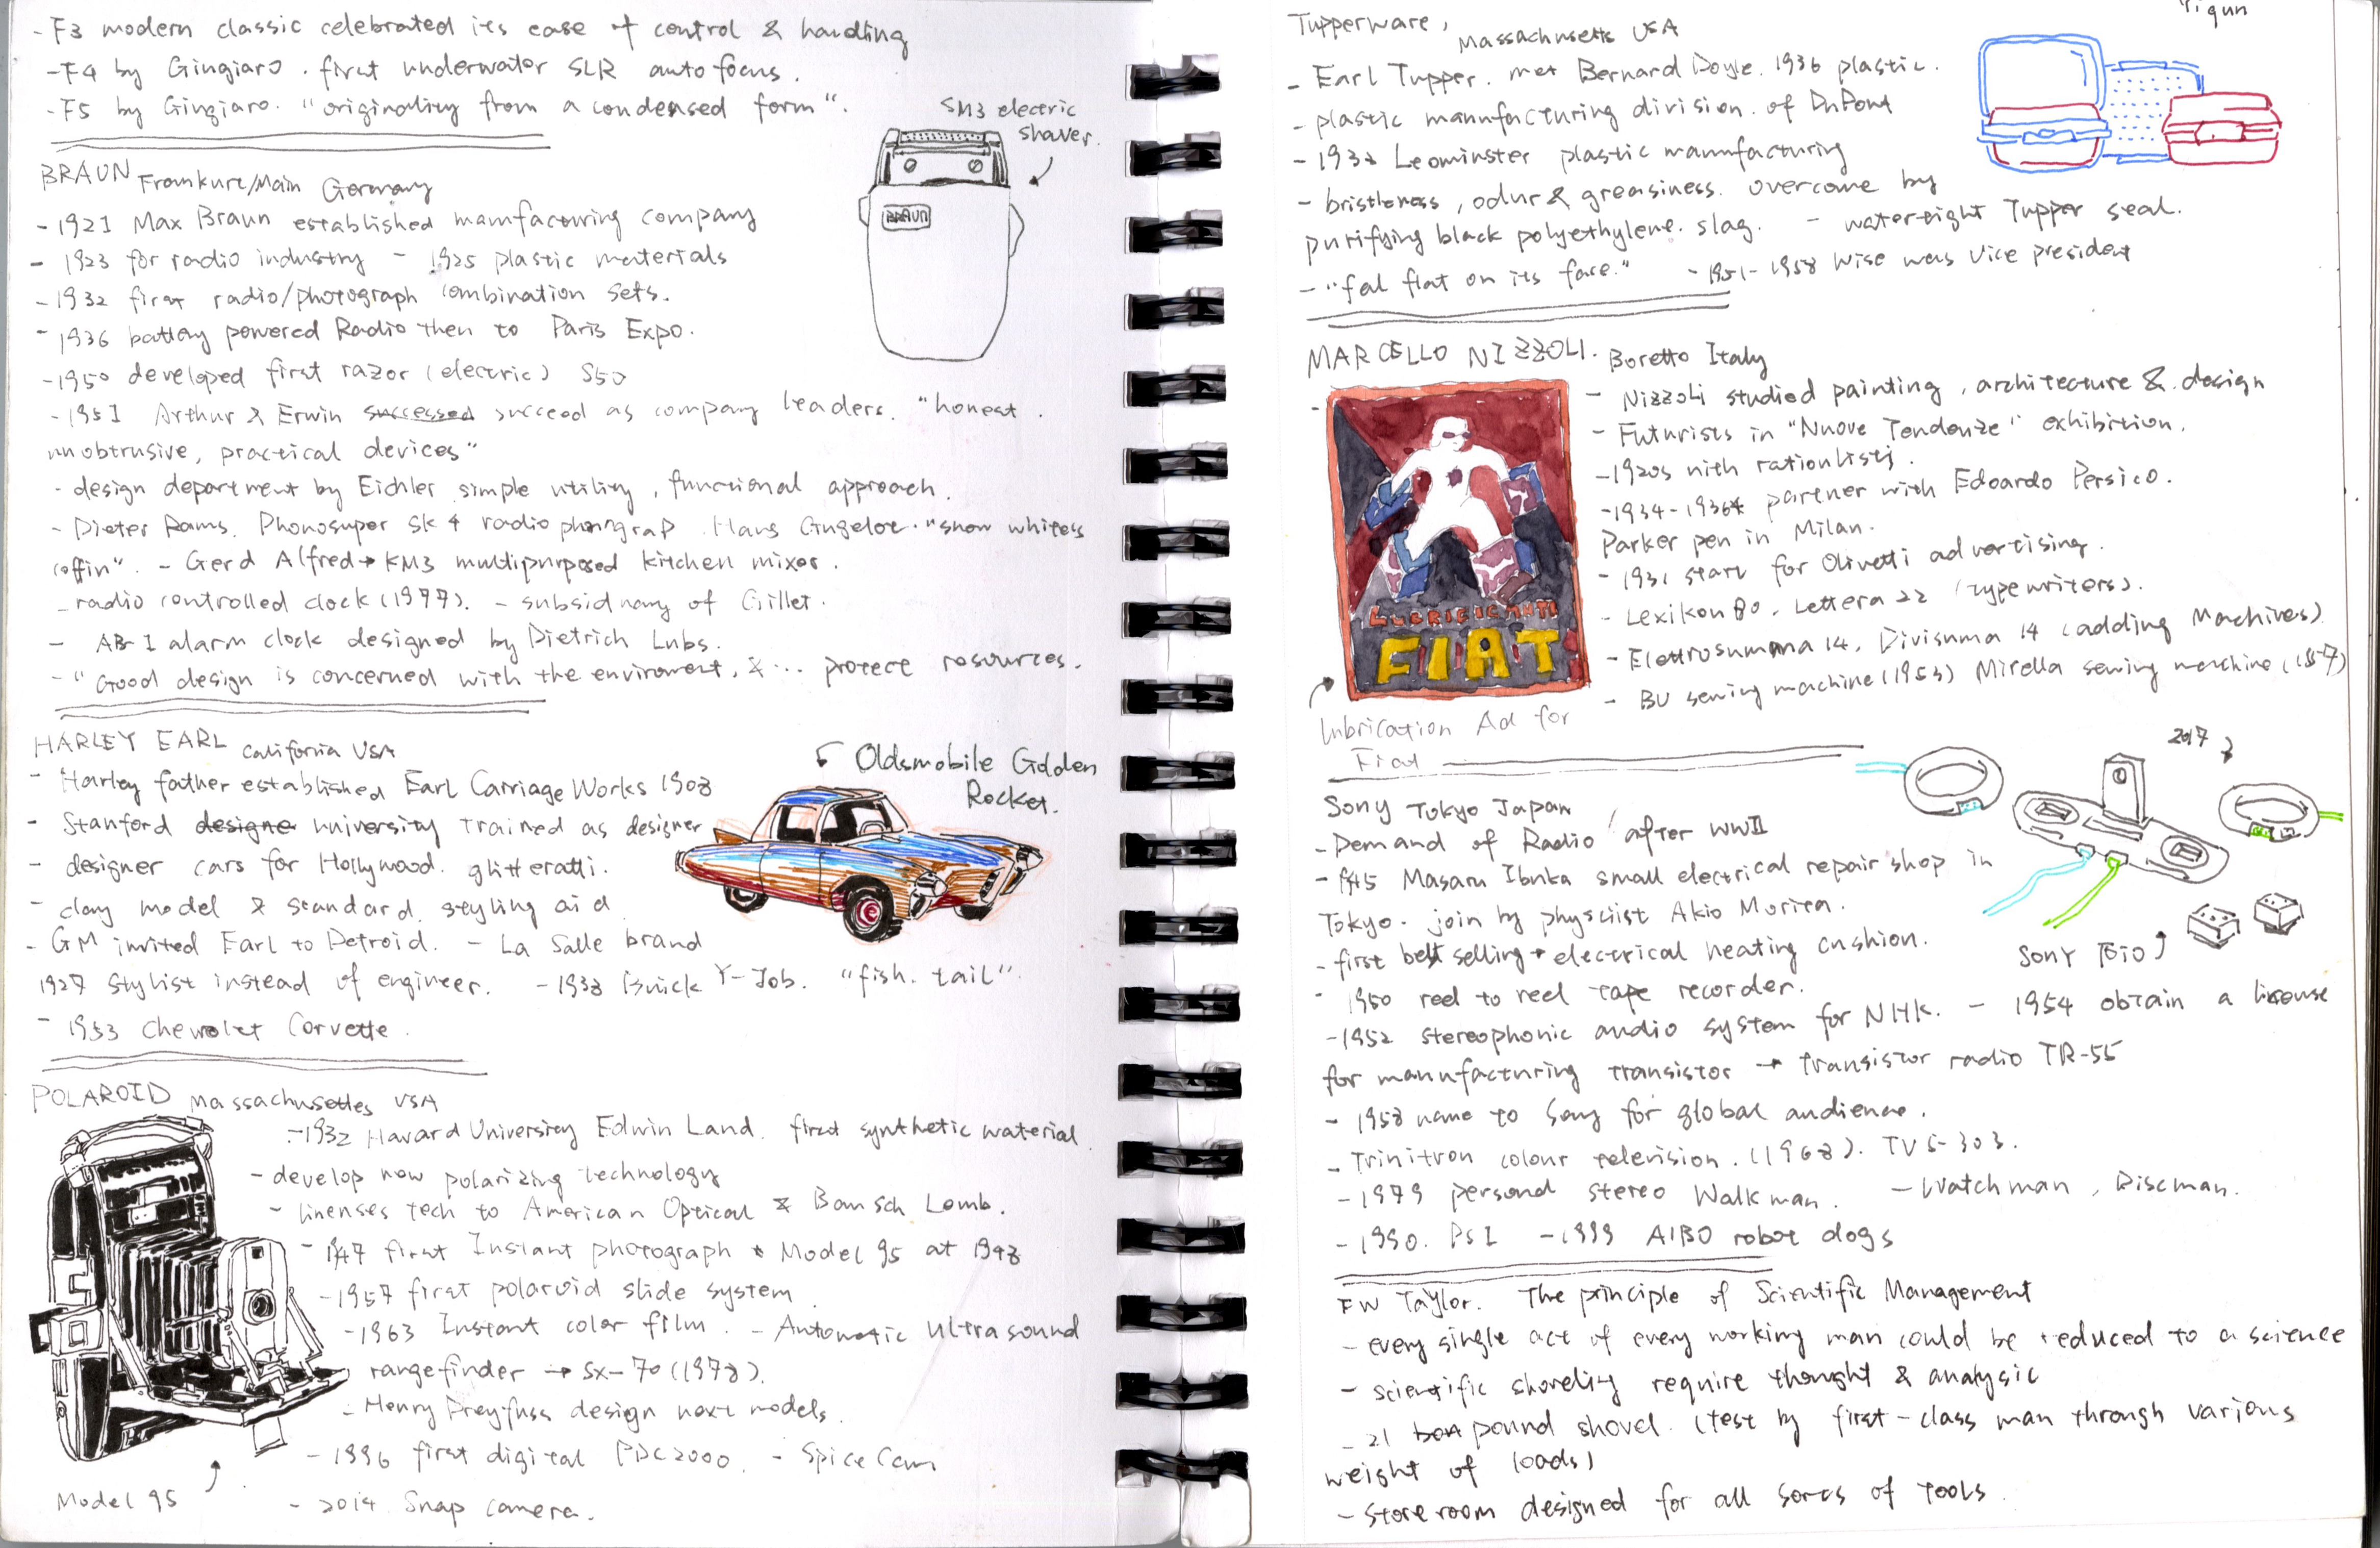 - F3 modern classic celebrated its ease of control & handling
- F4 by Giugiaro. first underwater SLR autofocus.
- F5 by Giugiaro. "originality from a condensed form".
SM3 electric
shaver.
BRAUN
BRAUN Frankure/Main Germany
- 1921 Max Braun established manufacturing company
- 1923 for radio industry - 1925 plastic materials
- 1932 first radio/photograph combination sets.
- 1936 battery powered Radio then to Paris Expo.
- 1950 developed first razor (electric) S50
- 1951 Arthur & Erwin successed succeed as company leaders. "honest.
unobtrusive, practical devices"
- design department by Eichler simple utility, functional approach.
- Dieter Rams. Phonosuper SK4 radio phonograp. Hans Gugelot. "snow white's
coffin". - Gerd Alfred → KM3 multipurposed kitchen mixer.
- radio controlled clock (1977). - subsidnary of Gillet.
- AB-1 alarm clock designed by Dietrich Lubs.
- "Good design is concerned with the enviroment, & ... protect resources.
HARLEY EARL California USA
Oldsmobile Golden
Rocket.
- Harley father established Earl Carriage Works 1908
- Stanford designe university trained as designer
- designer cars for Hollywood. glitteratti.
- clay model & standard. styling aid
- GM invited Earl to Detroid. - La Salle brand
1927 stylist instead of engineer. - 1938 Buick Y-Job. "fish. tail".
- 1953 Chevrolet Corvette.
POLAROID Massachusettes USA
- 1932 Havard University Edwin Land. first synthetic material
- develop new polarizing technology
- linenses tech to American Optical & Bausch Lomb.
- 1947 first Instant photograph * Model 95 at 1948
- 1957 first polaroid slide system
- 1963 Instant color film. - Automatic ultrasound
rangefinder → SX-70 (1978).
- Henry Dreyfuss design next models.
- 1996 first digital PDC2000. - Spice Cam
- 2014 Snap camera.
Model 95
Yiqun
Tupperware, Massachusetts USA
- Earl Tupper. met Bernard Doyle. 1936 plastic.
- plastic manufacturing division. of DuPont
- 1938 Leominster plastic manufacturing
- bristleness, odur & greasiness. overcome by
purifying black polyethylene. slag. - watertight Tupper seal.
- "fal flat on its face." - 1951-1958 Wise was Vice president
MARCELLO NIZZOLI. Boretto Italy
- Nizzoli studied painting, architecture & design
- Futurists in "Nuove Tendenze" exhibition.
- 1920s with rationlists.
- 1934-1936 partner with Edoardo Persico.
Parker pen in Milan.
- 1931 start for Olivetti advertising.
- Lexikon 80. Lettera 22 (typewriters).
- Elettrosumma 14, Divisumma 14 (adding Machines)
- BU sewing machine (1953) Mirella sewing machine (1957)
LUBRIFICANTI
FIAT
Lubrication Ad for
Fiat
2017
Sony Tokyo Japan
- Demand of Radio after WWII
- 1945 Masaru Ibuka small electrical repair shop in
Tokyo. join by physciist Akio Morita.
- first best selling → electrical heating cushion.
- 1950 reel to reel tape recorder.
- 1952 stereophonic audio system for NHK. - 1954 obtain a license
for manufacturing transistor → transistor radio TR-55
- 1958 name to Sony for global audience.
- Trinitron colour television. (1968). TV5-303.
- 1979 personal stereo Walkman. - Watchman, Discman.
- 1990. PS1 - 1999 AIBO robot dogs
FW Taylor. The principle of Scientific Management
- every single act of every working man could be reduced to a science
- scientific shoveling require thought & analysic
- 21 pound shovel. (test by first-class man through various
weight of loads)
- storeroom designed for all sorts of tools